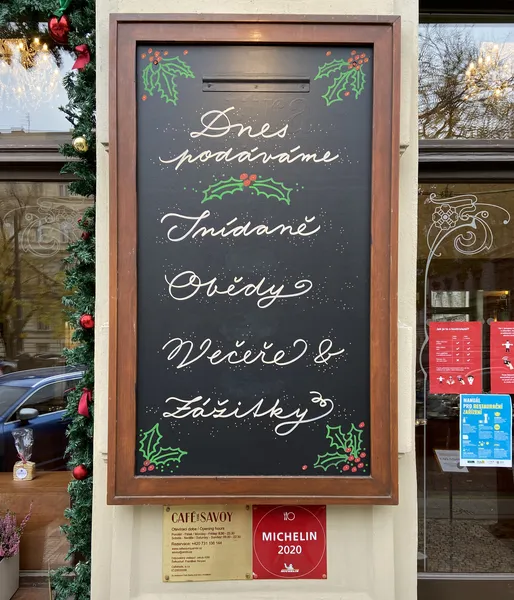 Dnes
podáváme
Snídaně
Obědy
Večeře &
Zážitky
CAFÉ SAVOY
Otevírací doba / Opening hours
MICHELIN
2020
MICHELIN
MANUÁL
PRO RESTAURAČNÍ
ZAŘÍZENÍ